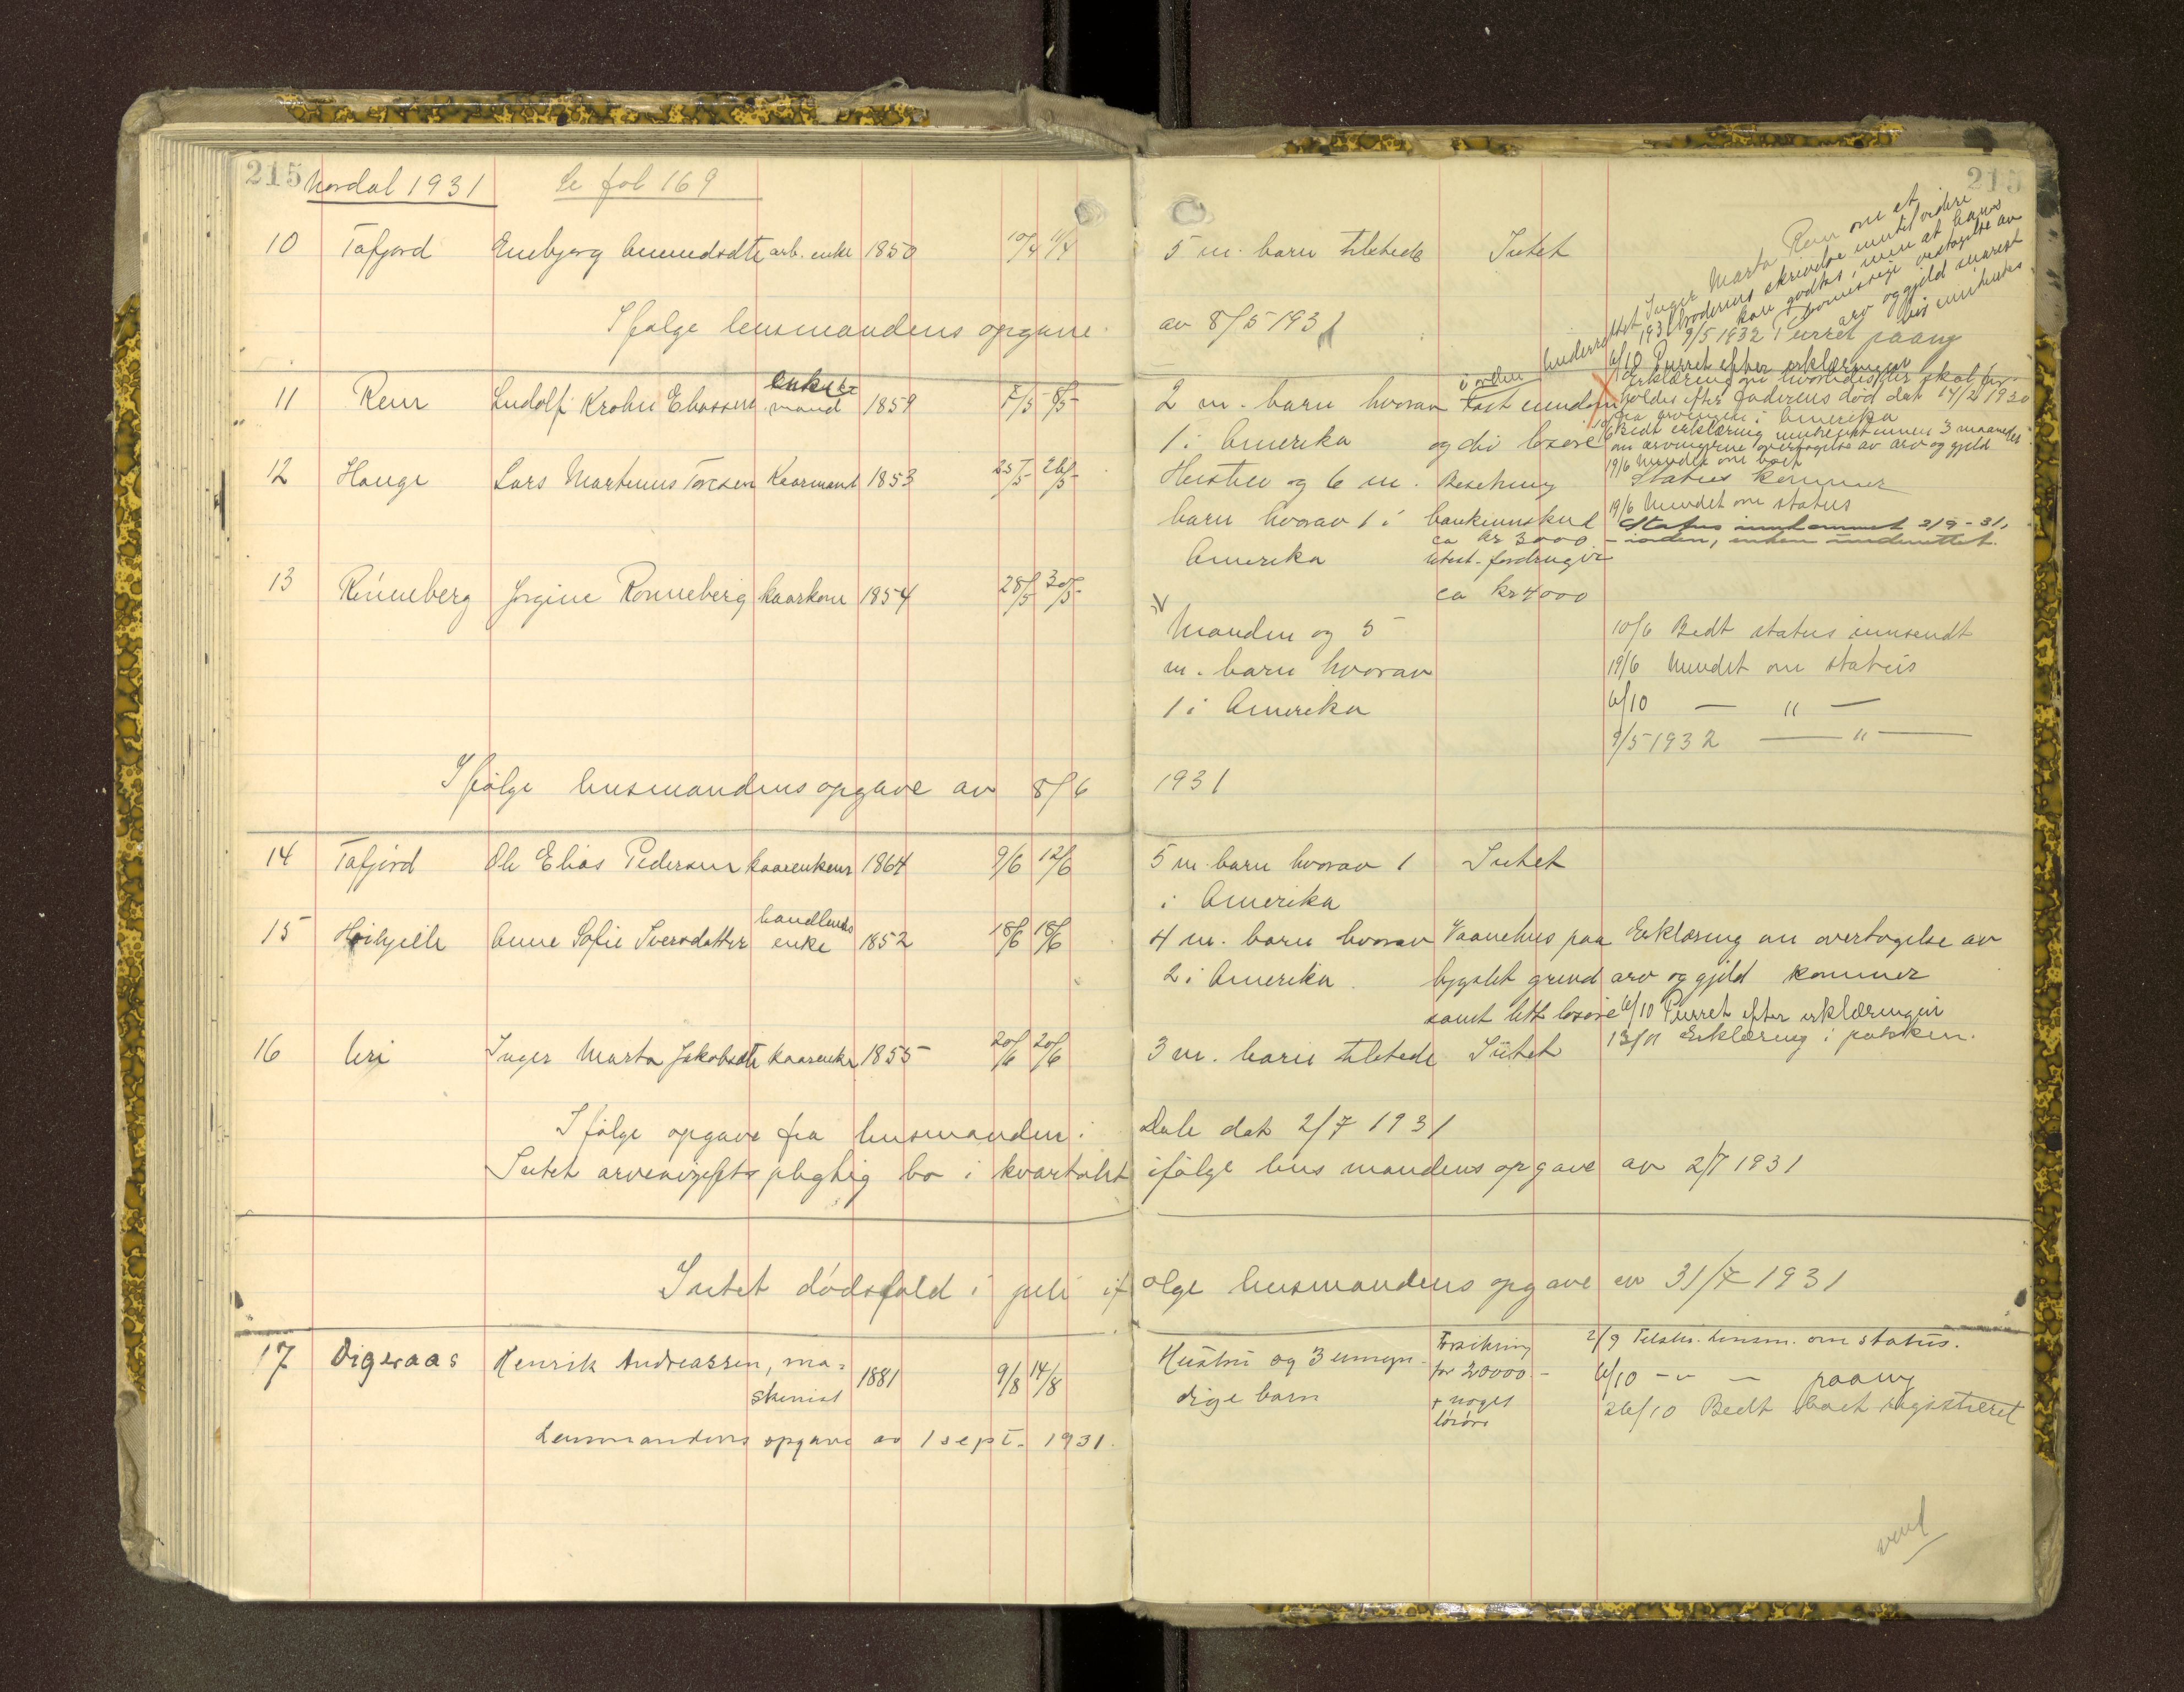 215 Nordal 1931 Se fol 169
10 Tafjord Enebjørg Amundsdtr arb. enke 1850 10/4 11/4
Ifølge lensmandens opgave
11 Rem Ludolf Krohn Eliassen enke mand 1859 7/5 8/5
12 Hauge Lars Martinus Toresen Kaarmand 1853 25/5 26/5
13 Rønneberg Jørgine Rønneberg kaarkone 1854 28/5 30/5
Ifølge lensmandens opgave av 8/6
14 Tafjord Ole Elias Pedersen kaarenkem 1864 9/6 12/6
15 Høihjelle Anne Sofie Sversdatter handlends enke 1852 18/6 18/6
16 Uri Inger Marta Jakobsdtr kaarenke 1855 20/6 20/6
Ifølge opgave fra lensmanden i
Intet arveavgiftspligtig bo i kvartalet
Intet dødsfald i juli if
17 Digeraas Henrik Andreassen, ma=
skinist 1881 9/8 14/8
Lensmandens opgave av 1 sept. 1931.
215
5 m. barn tilstede Intet
av 8/5 1931
Inger Marta Rem om at
broderens skrivelse intet videre
kan godtas, men at hans
arv og gjeld snarest
bis innhentes
9/5 1932 Purret paany
6/10 Purret efter erklæringen
2 m. barn hvorav fast eiendom
i orden
1 i Amerika og div løsøre
Erklæring om hvorledes der skal for-
holdes efter faderens død dat 14/2 1930
fra arvingene i Amerika
10/6 Bedt erklæring innen 3 maaneder
om arvingerne overtagelse av arv og gjeld
19/6 Mindet om boet
Hustru og 6 m. Besetning Status kommer
barn hvorav 1 i bankinnskud 19/6 Mindet om status
ca kr 3000 Status innkommet 2/9-31,
- iorden, enken underrettet.
Amerika utest. fordringer
ca kr 4000
Manden og 5 10/6 Bedt status innsendt
m. barn hvorav 19/6 Mindet om status
1 i Amerika 6/10 — " —
9/5 1932 — " —
1931
5 m. barn hvorav 1 Intet
i Amerika
4 m. barn hvorav Vaanehus paa Erklæring om overtagelse av
2 i Amerika bygslet grund arv og gjeld kommer
samt litt løsøre 6/10 Purret efter erklæringen
3 m. barn tilstede Intet 13/11 Erklæring i pakken.
Dale dat 2/7 1931
ifølge lensmandens opgave av 2/7 1931
ølge lensmandens opgave av 31/7 1931
Hustru og 3 umyn- Forsikring 2/9 Tilskr. lensm. om status.
dige barn for 20000.- 6/10 - " - paany
+ noget 26/10 Bedt boet registreret
løsøre
vend